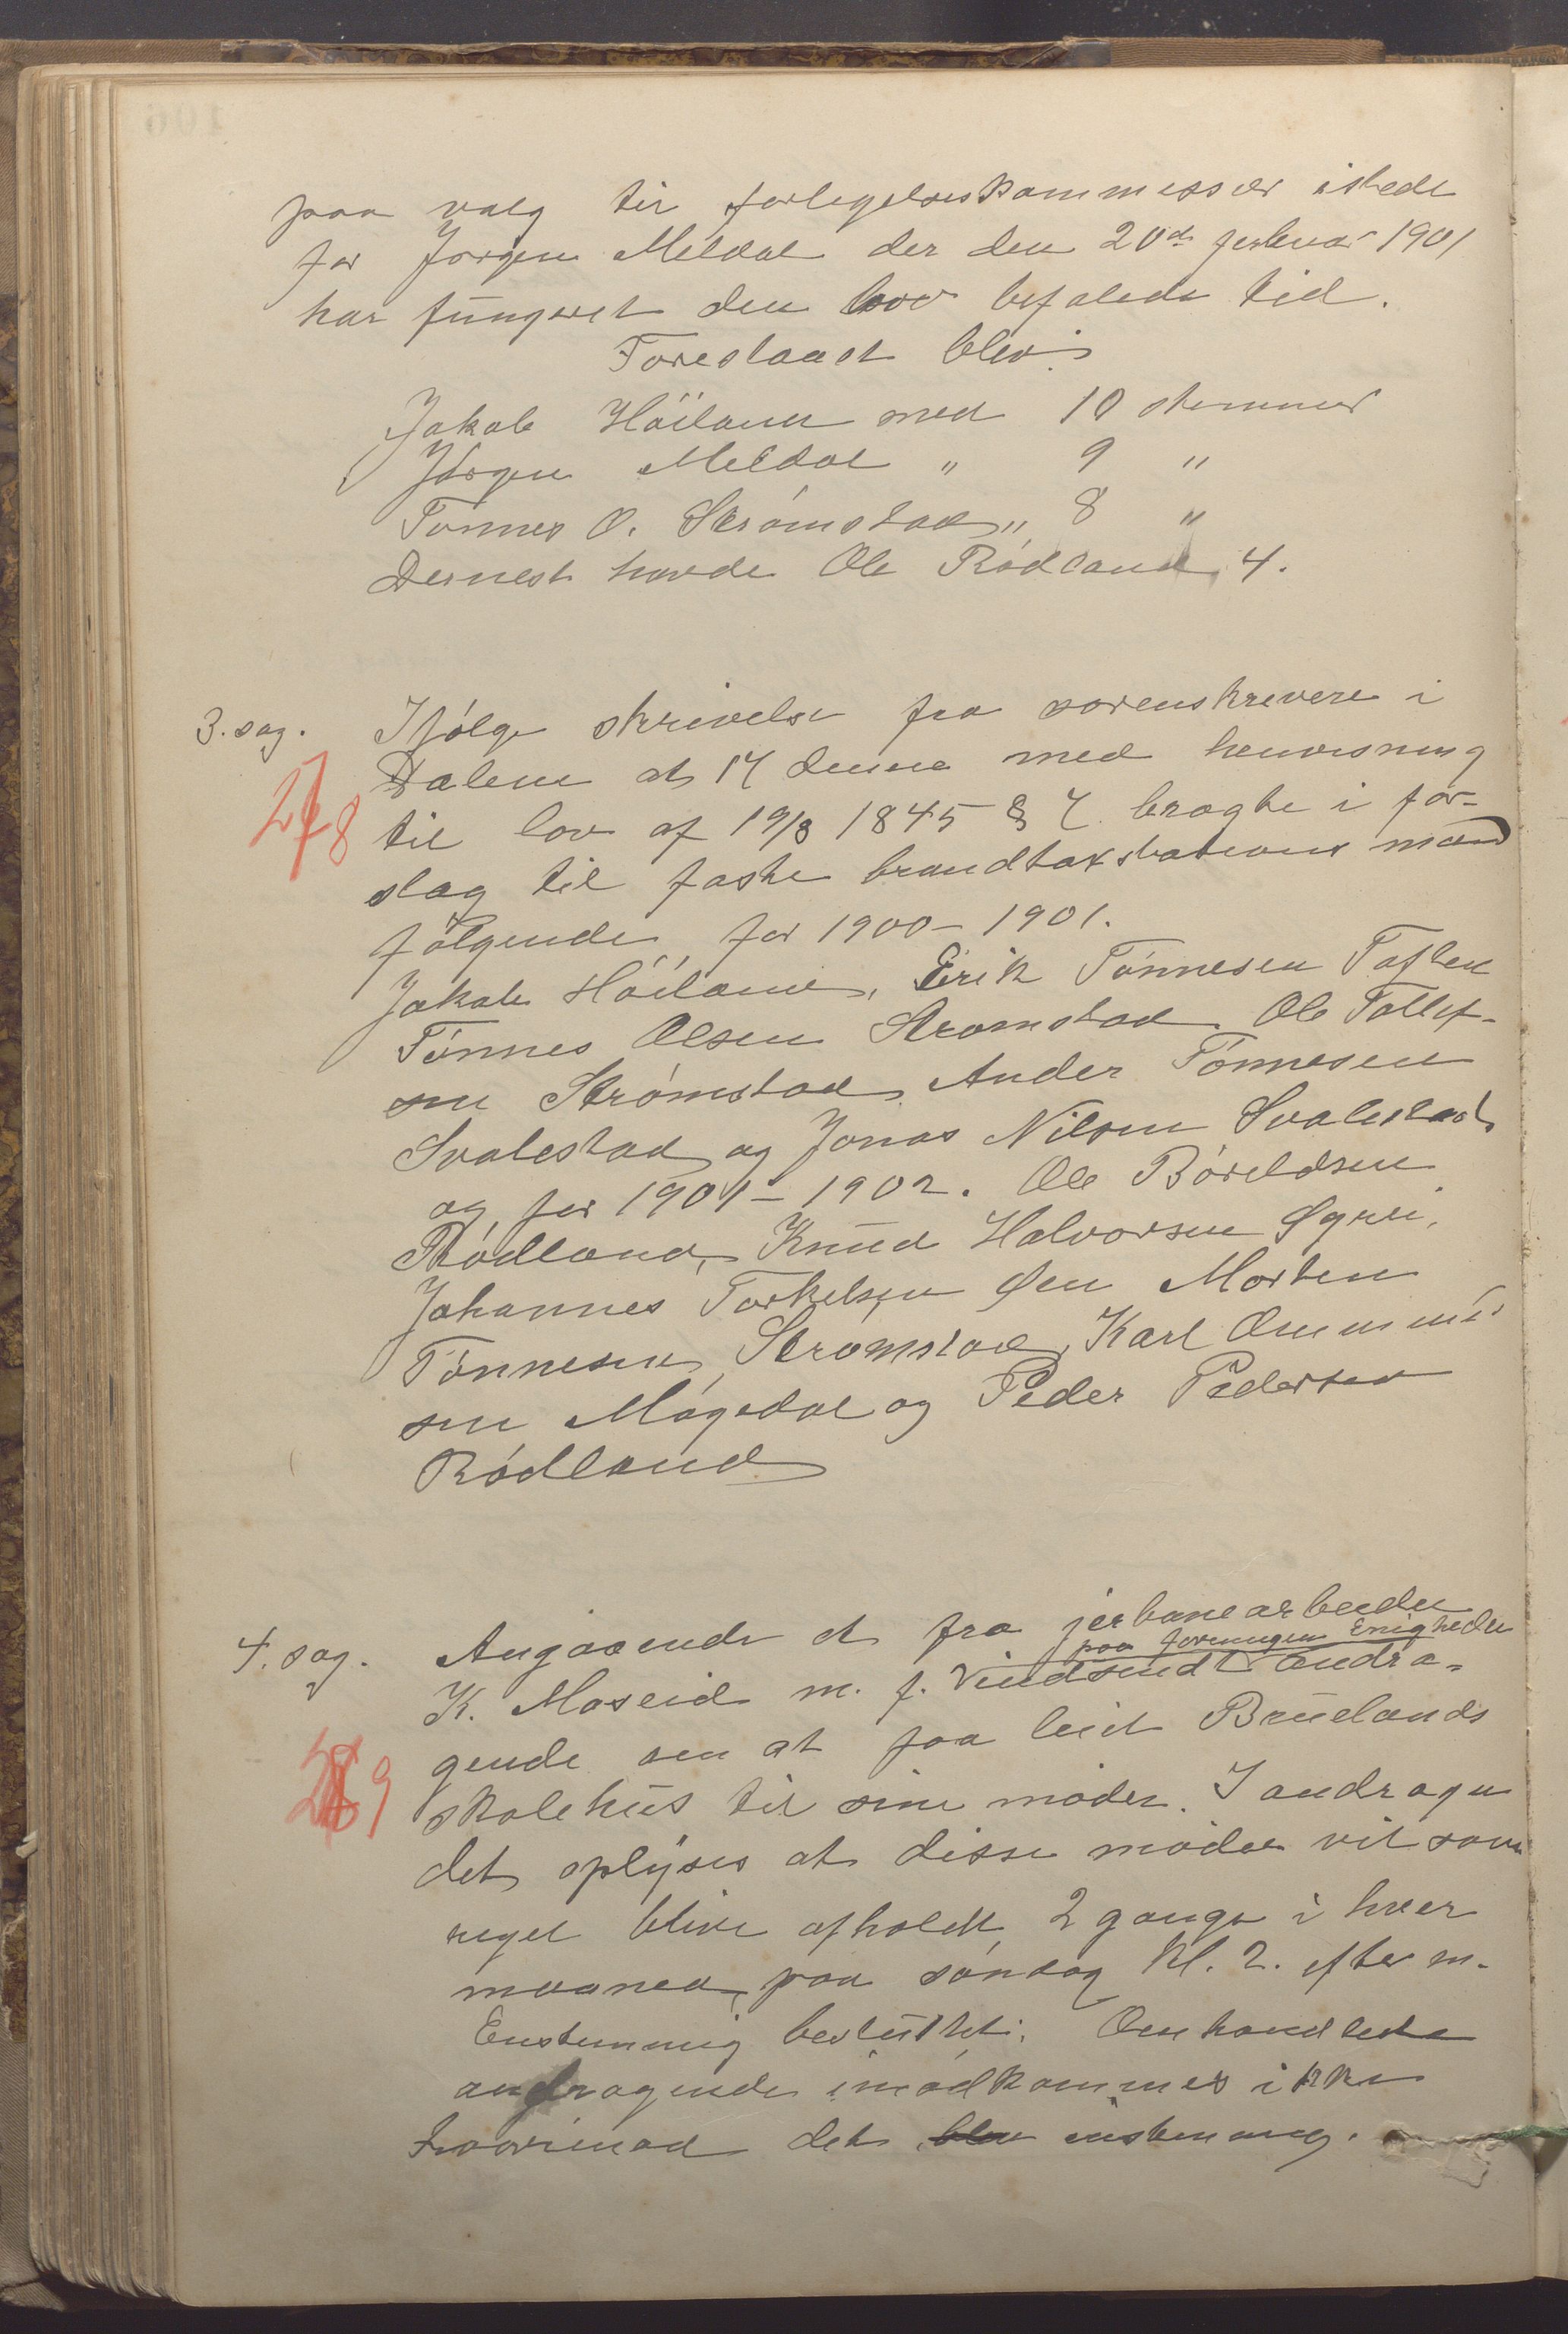 paa valg til forligelseskommissær istede
for Jørgen Meldal der den 20de februar 1901
har fungeret den lov befalede tid.
Foreslaaet blev:
Jakob Höiland med 10 stemmer
Jørgen Meldal " 9 "
Tønnes O. Strømstad " 8 "
Dernest havde Ole Rødland 4.
3. sag. Ifølge skrivelse fra sorenskriveren i
Dalene at 17 denne med henvisning
278 til lov af 19/8 1845 § 7 bragte i for-
slag til faste brandtakstations mænd
følgende for 1900-1901.
Jakob Höiland, Erik Tønnesen Toften
Tønnes Olsen Strømstad Ole Tollef-
sen Strømstad, Ander Tønnesen
Svalestad og Jonas Nilsen Svalestad
og for 1901-1902. Ole Børeldsen
Rødland, Knud Halvorsen Øgrei,
Johannes Torkelsen Øen Morten
Tønnesen Strømstad, Karl Ommund
sen Møgedal og Peder Pedersen
Rødland
4. sag. Angaaende et fra jerbanearbeider
paa foreningen Enigheden
K. Moseid m. fl. indsendt andra-
gende om at faa leiet Bruelands
289 skolehus til sine møder. I andragen
det oplyses at disse møder vil som
regel blive afholdt 2 gange i hver
maaned paa søndag Kl. 2. efter m.
Enstemmig besluttet: Omhandlede
andragende imødkommes ikke
hvorimod det blev enstemmig.